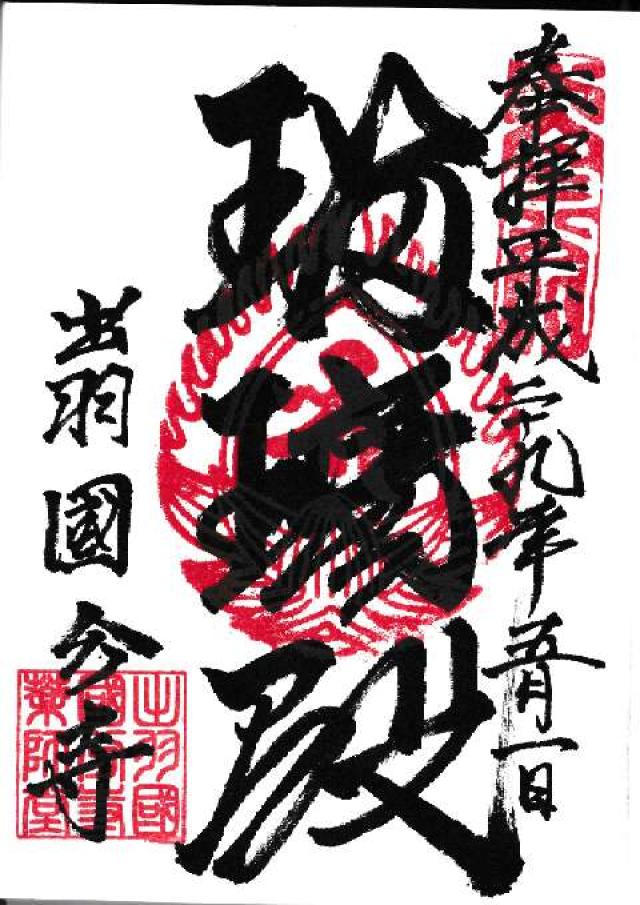 奉拝平成二十九年五月一日
瑠璃殿
出羽國分寺
出羽國
國分寺
薬師堂